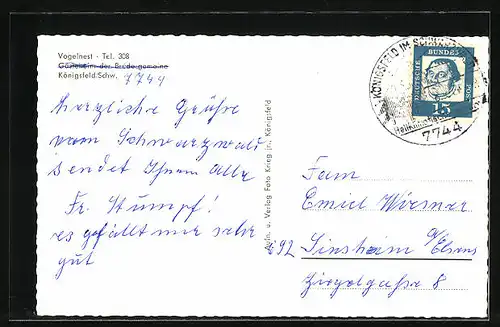 Vogelnest · Tel. 308
Gästeheim der Brüdergemeine
Königsfeld/Schw. 7744
herzliche Grüße
vom Schwarzwald
sendet Ihnen alle
Fr. Stumpf!
es gefällt mir sehr
gut
Aufn. u. Verlag Foto Krieg jr., Königsfeld
KÖNIGSFELD IM SCHWARZWALD
Heilklimatischer
7744
DEUTSCHE BUNDESPOST
15
Fam
Emil Wiemer
692 Sinsheim a/Elsenz
Ziegelgasse 8